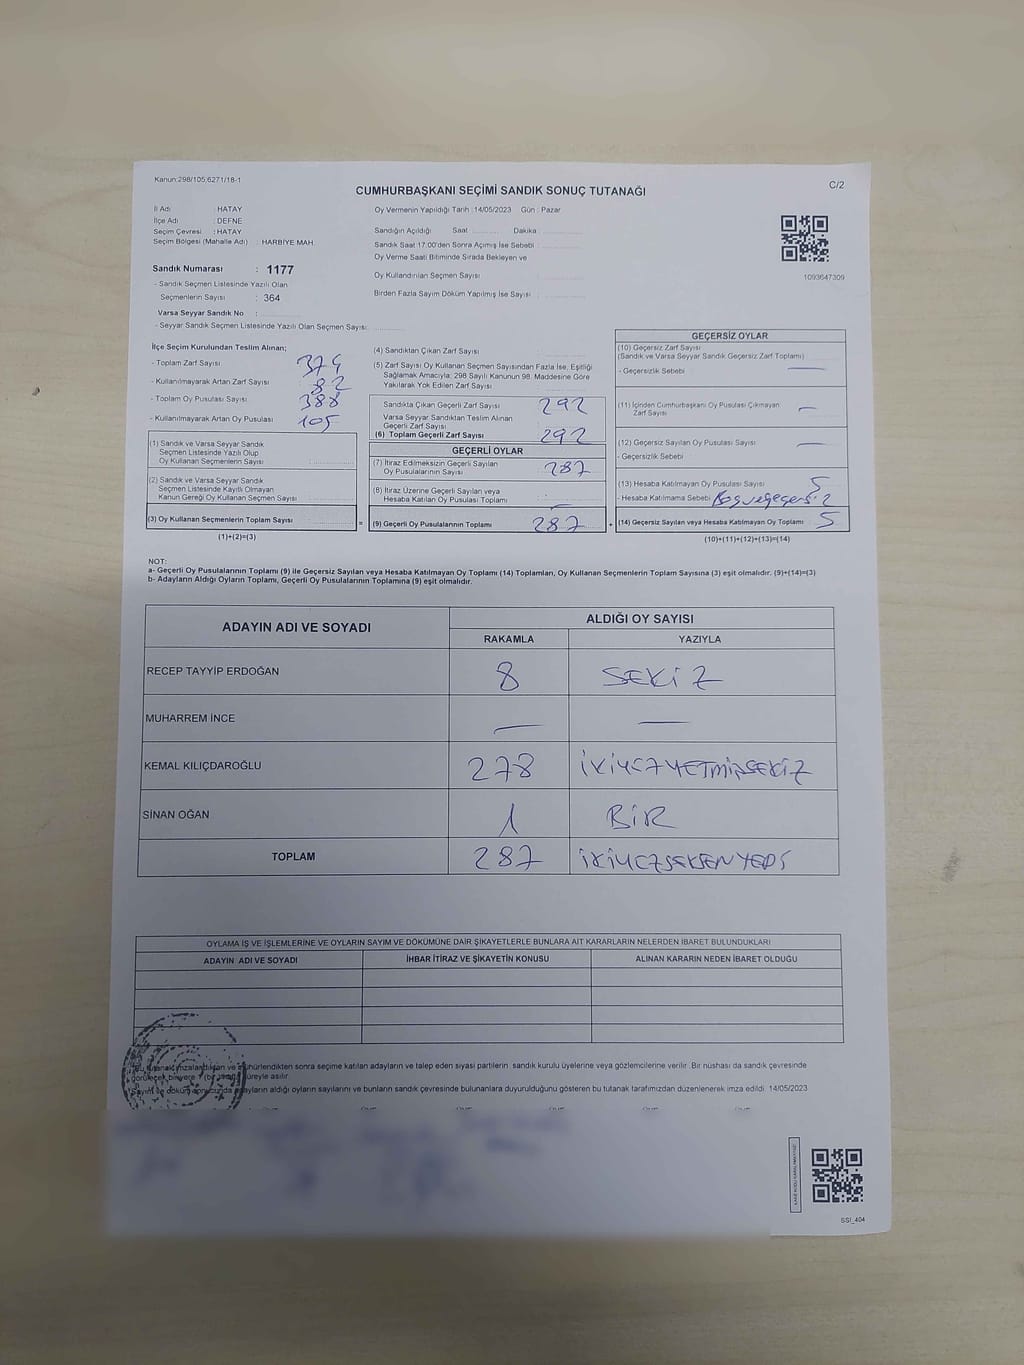 Kanun:298/105,6271/18-1
C/2
CUMHURBAŞKANI SEÇİMİ SANDIK SONUÇ TUTANAĞI
İl Adı : HATAY
İlçe Adı : DEFNE
Seçim Çevresi : HATAY
Seçim Bölgesi (Mahalle Adı) : HARBİYE MAH.
Oy Vermenin Yapıldığı Tarih :14/05/2023 Gün : Pazar
Sandığın Açıldığı Saat Dakika
Sandık Saat 17.00'den Sonra Açılmış İse Sebebi :
Oy Verme Saati Bitiminde Sırada Bekleyen ve
Oy Kullandırılan Seçmen Sayısı :
Birden Fazla Sayım Döküm Yapılmış İse Sayısı :
1093647309
Sandık Numarası : 1177
- Sandık Seçmen Listesinde Yazılı Olan
Seçmenlerin Sayısı : 364
Varsa Seyyar Sandık No :
- Seyyar Sandık Seçmen Listesinde Yazılı Olan Seçmen Sayısı:
İlçe Seçim Kurulundan Teslim Alınan;
- Toplam Zarf Sayısı 374
- Kullanılmayarak Artan Zarf Sayısı 82
- Toplam Oy Pusulası Sayısı 388
- Kullanılmayarak Artan Oy Pusulası 105
(1) Sandık ve Varsa Seyyar Sandık
Seçmen Listesinde Yazılı Olup
Oy Kullanan Seçmenlerin Sayısı :
(2) Sandık ve Varsa Seyyar Sandık
Seçmen Listesinde Kayıtlı Olmayan
Kanun Gereği Oy Kullanan Seçmen Sayısı :
(3) Oy Kullanan Seçmenlerin Toplam Sayısı : =
(1)+(2)=(3)
(4) Sandıktan Çıkan Zarf Sayısı :
(5) Zarf Sayısı Oy Kullanan Seçmen Sayısından Fazla İse, Eşitliği
Sağlamak Amacıyla; 298 Sayılı Kanunun 98. Maddesine Göre
Yakılarak Yok Edilen Zarf Sayısı :
Sandıkta Çıkan Geçerli Zarf Sayısı 292
Varsa Seyyar Sandıktan Teslim Alınan
Geçerli Zarf Sayısı :
(6) Toplam Geçerli Zarf Sayısı 292
GEÇERLİ OYLAR
(7) İtiraz Edilmeksizin Geçerli Sayılan
Oy Pusulalarının Sayısı : 287
(8) İtiraz Üzerine Geçerli Sayılan veya
Hesaba Katılan Oy Pusulası Toplamı : —
(9) Geçerli Oy Pusulalarının Toplamı 287 +
GEÇERSİZ OYLAR
(10) Geçersiz Zarf Sayısı
(Sandık ve Varsa Seyyar Sandık Geçersiz Zarf Toplamı)
- Geçersizlik Sebebi : —
(11) İçinden Cumhurbaşkanı Oy Pusulası Çıkmayan
Zarf Sayısı : —
(12) Geçersiz Sayılan Oy Pusulası Sayısı : —
- Geçersizlik Sebebi :
(13) Hesaba Katılmayan Oy Pusulası Sayısı : 5
- Hesaba Katılmama Sebebi : Boş ve geçersiz
(14) Geçersiz Sayılan veya Hesaba Katılmayan Oy Toplamı : 5
(10)+(11)+(12)+(13)=(14)
NOT:
a- Geçerli Oy Pusulalarının Toplamı (9) ile Geçersiz Sayılan veya Hesaba Katılmayan Oy Toplamı (14) Toplamları, Oy Kullanan Seçmenlerin Toplam Sayısına (3) eşit olmalıdır. (9)+(14)=(3)
b- Adayların Aldığı Oyların Toplamı, Geçerli Oy Pusulalarının Toplamına (9) eşit olmalıdır.
ADAYIN ADI VE SOYADI
ALDIĞI OY SAYISI
RAKAMLA YAZIYLA
RECEP TAYYİP ERDOĞAN 8 SEKİZ
MUHARREM İNCE — —
KEMAL KILIÇDAROĞLU 278 İKİYÜZYETMİŞSEKİZ
SİNAN OĞAN 1 BİR
TOPLAM 287 İKİYÜZSEKSENYEDİ
OYLAMA İŞ VE İŞLEMLERİNE VE OYLARIN SAYIM VE DÖKÜMÜNE DAİR ŞİKAYETLERLE BUNLARA AİT KARARLARIN NELERDEN İBARET BULUNDUKLARI
ADAYIN ADI VE SOYADI İHBAR İTİRAZ VE ŞİKAYETİN KONUSU ALINAN KARARIN NEDEN İBARET OLDUĞU
Bu tutanak imzalandıktan ve mühürlendikten sonra seçime katılan adayların ve talep eden siyasi partilerin sandık kurulu üyelerine veya gözlemcilerine verilir. Bir nüshası da sandık çevresinde
görülecek bir yere 7 (bir hafta) süreyle asılır.
Sayım ve döküm sonucunda adayların aldığı oyların sayılarını ve bunların sandık çevresinde bulunanlara duyurulduğunu gösteren bu tutanak tarafımızdan düzenlenerek imza edildi. 14/05/2023
SSI_404